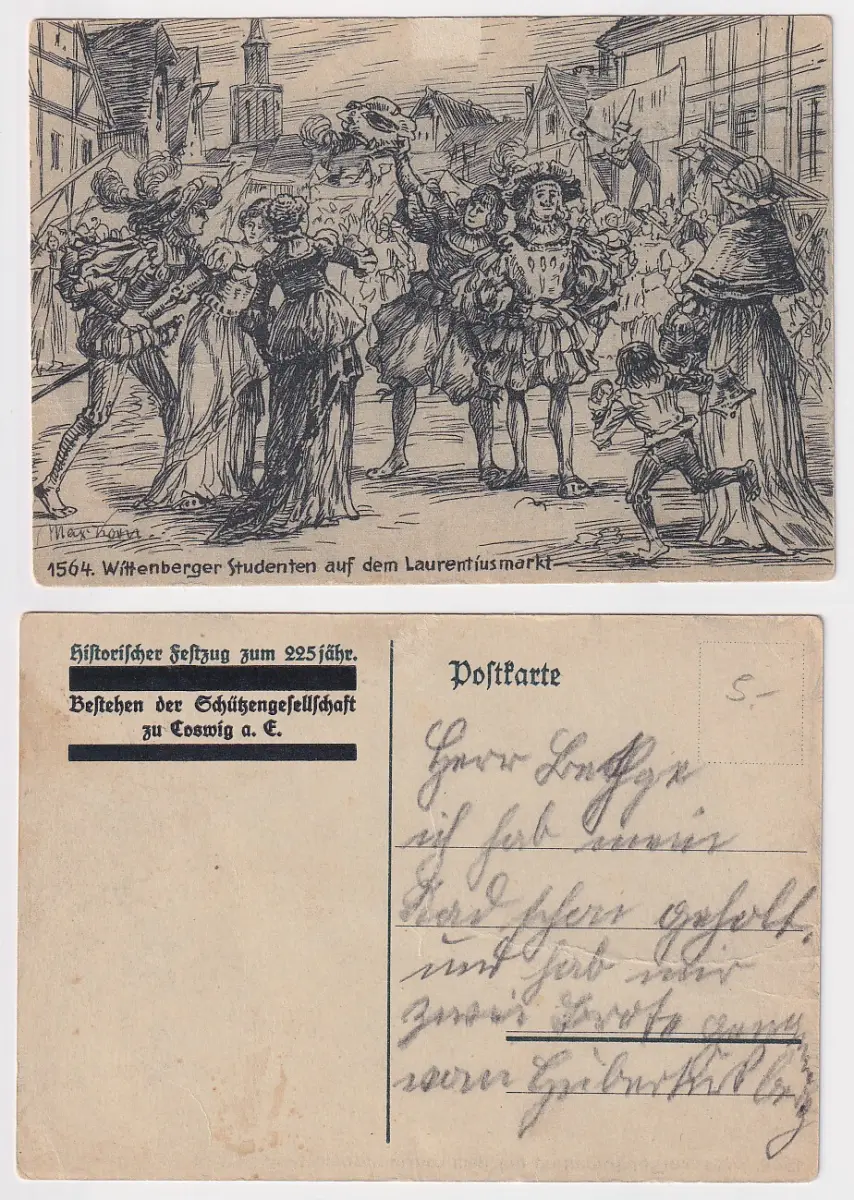 Max Korn.
1564. Wittenberger Studenten auf dem Laurentiusmarkt
Historischer Festzug zum 225jähr.
Bestehen der Schützengesellschaft
zu Coswig a. E.
Postkarte
5.-
Herr Bethge
ich hab mein
Rad schon geholt.
und hab mir
zwei Brote
vom Hubertusberg